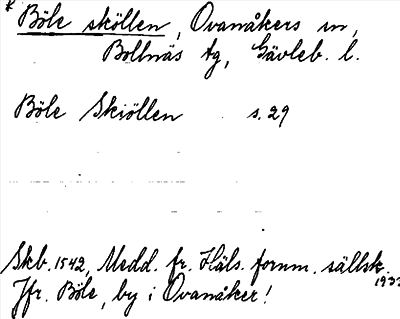 Böle sköllen, Ovanåkers sn,
Bollnäs tg, Gävleb. l.
Böle Skiöllen s. 29
Skb. 1542, Medd. fr. Häls. fornm. sällsk.
Jfr. Böle, by i Ovanåker!